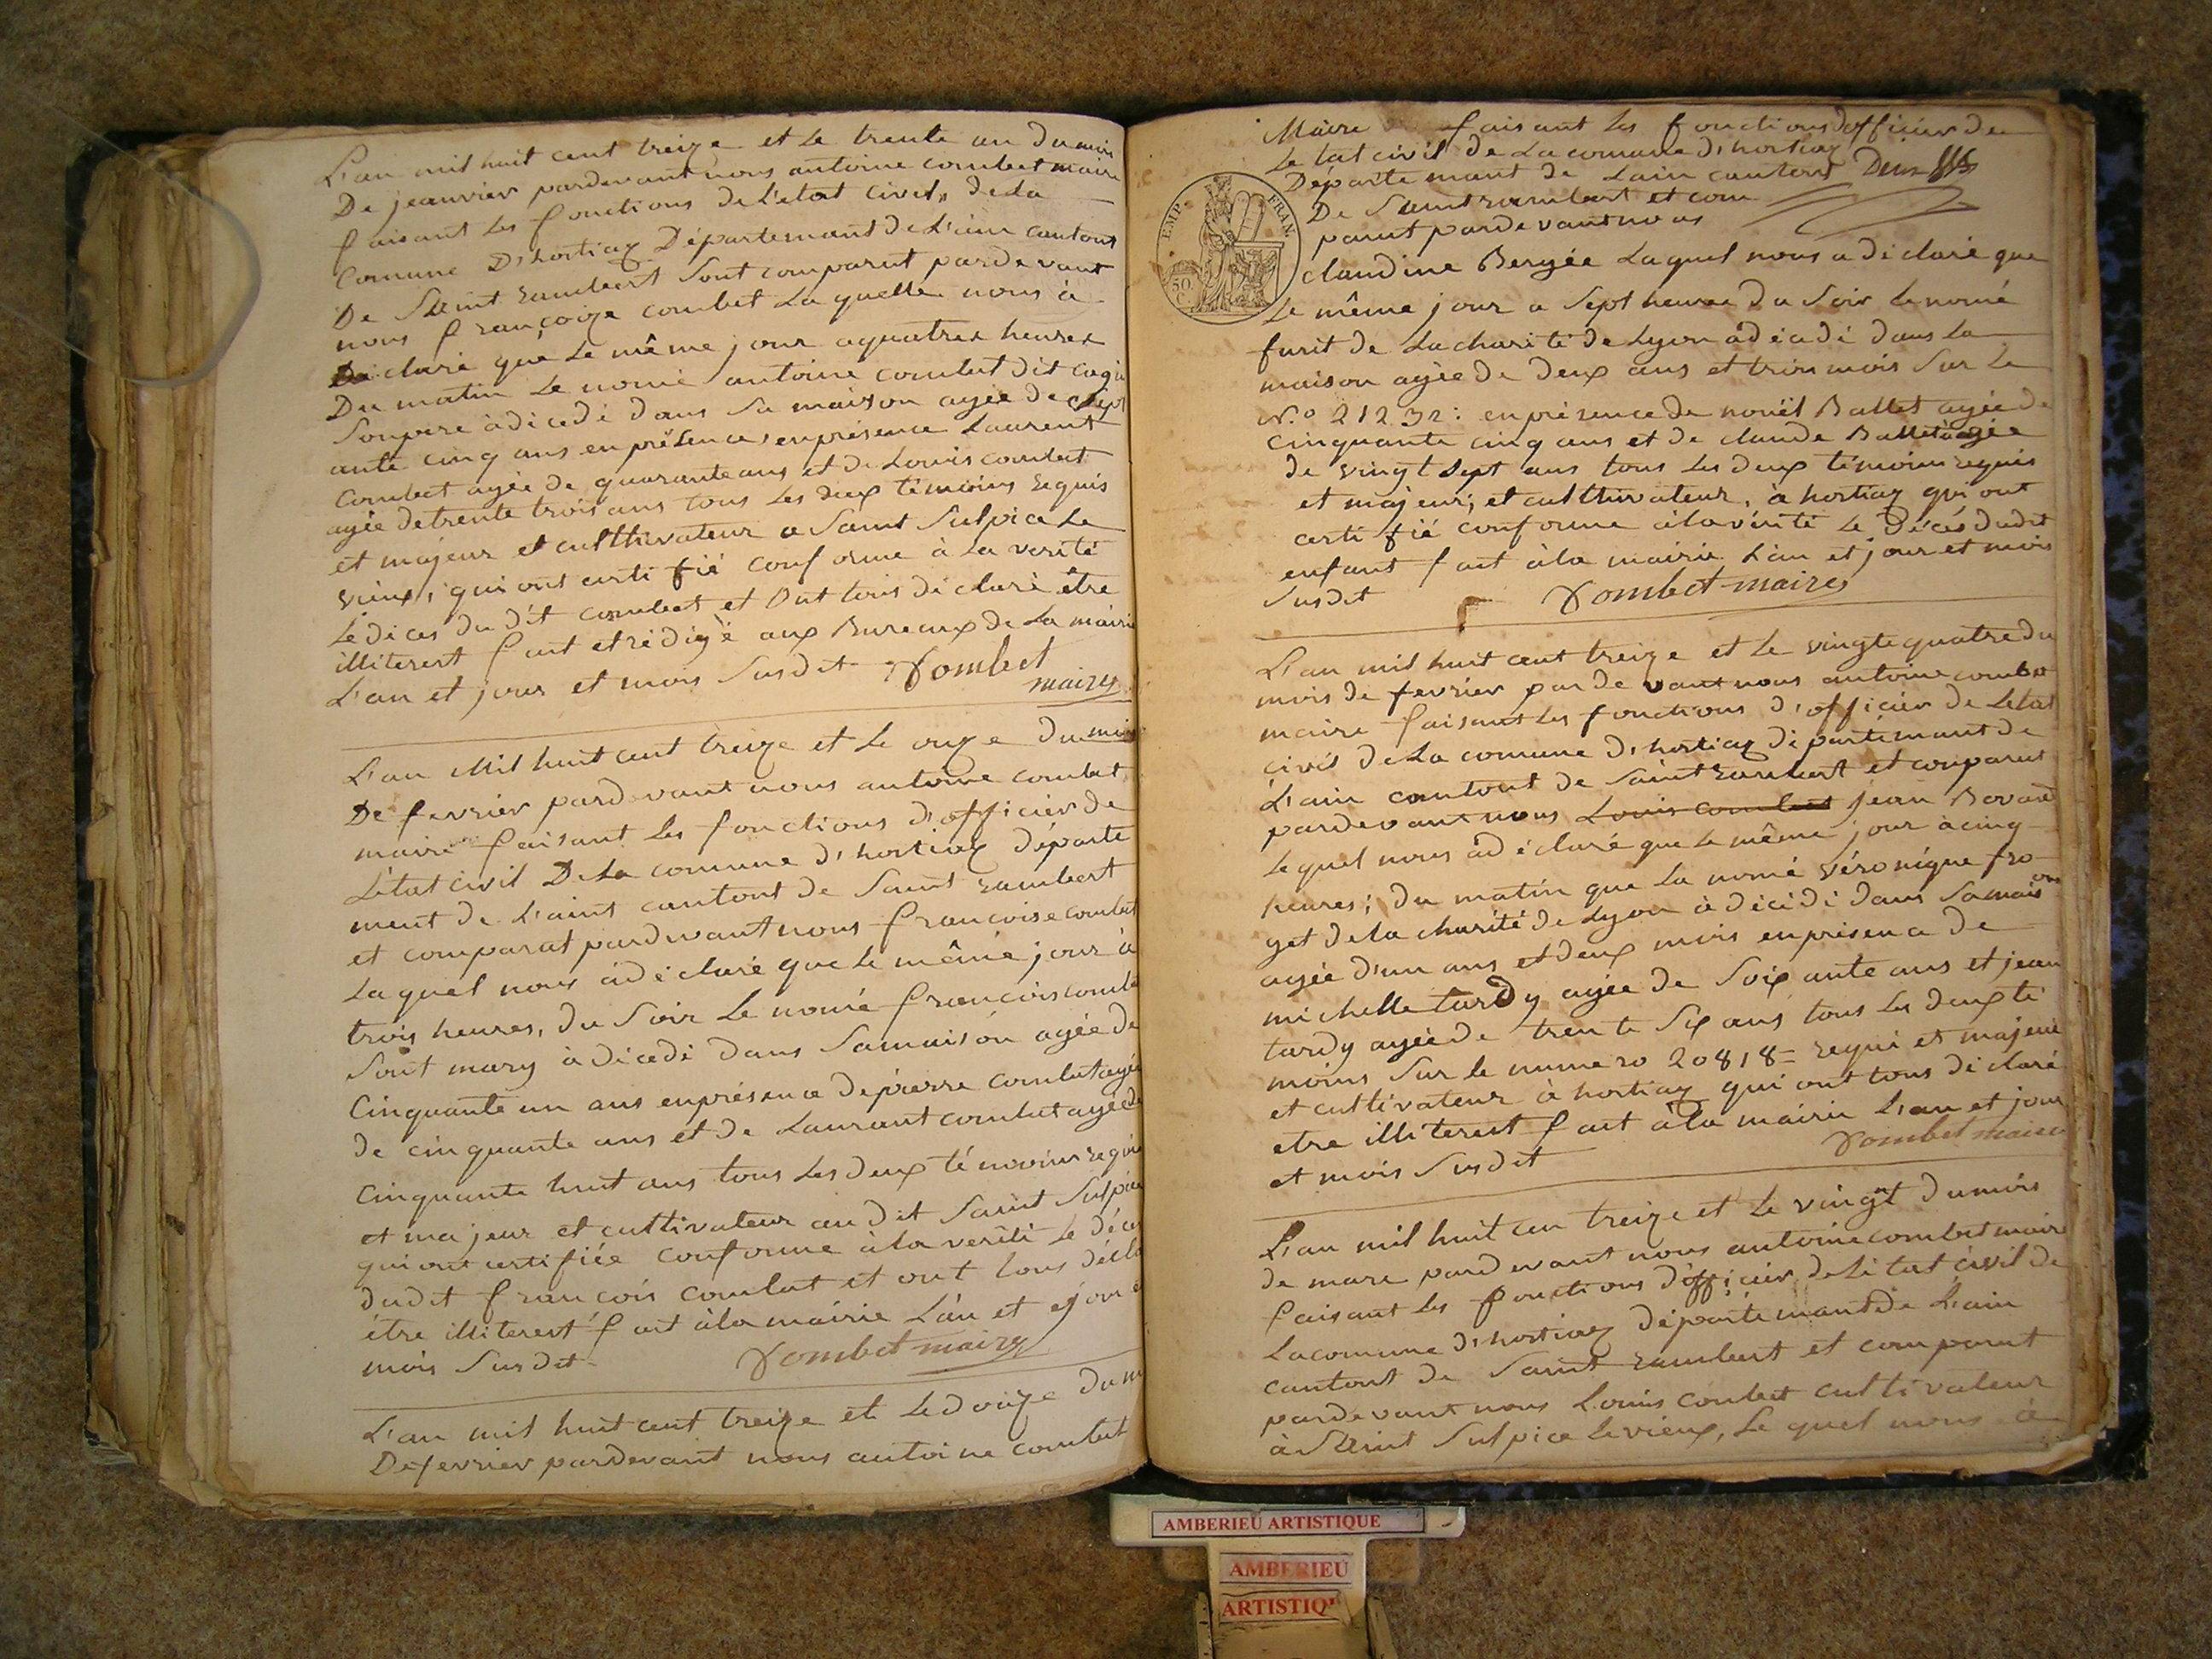 L'an mil huit cent treize et Le trente un du mois
De jeanvier pardevant nous antoine combet maire
faisant Les fonctions de L'etat civil, de La
Comune D'hortiaz Départemant de L'ain cantont
De Saint rambert Sont comparut pardevant
nous françoize combet La quelle nous à
Declaré que Le même jour aquatres heures
Du matin Le nomé antoine combet dit
Soupere à dicedé dans Sa maison agée de
ante cinq ans enprésence, enprésence Laurent
Combet agée de quarante ans et de Louis combet
agée de trente trois ans tous Les deux témoins requis
et majeur et culthivateur a Saint Sulpice Le
vieux, qui ont certi fié conforme à La verité
Le dices du dit combet et Ont tous di claré être
illiterest fait et rédigé aux Bureaux de La mairie
L'an et jour et mois Susdit Combet
maire
L'an Mil huit cent treize et Le onze du mois
De fevrier pardevant nous antoine combet
maire faisant Les fonctions d'officier de
L'état civil De La comune d'hortiaz départe
ment de L'aint cantont de Saint rambert
et comparat pardevant nous francoise combet
Laquel nous à déclaré que Le même jour à
trois heures, du Soir Le nomé francois combet
Sont mary à dicedé dans Samaison agée de
Cinquante un ans enprésence de pierre combet agée
de cinquante ans et de Laurant combet agée de
Cinquante huit ans tous Les deux témoins requis
et majeur et cultivateur au dit Saint Sulpice
qui ont certifiée conforme à la verité Le déces
dudit francois combet et ont tous décla
être illiterest fait à la mairie L'an et jour et
mois Sus dit Combet maire
L'an mil huit cent treize et Le douze du m
De fevrier pardevant nous antoine combet
Maire faisant Les fonctions d'officier de
Le tat civil de La comune d'hortiaz
Départe mant de Lain cantont Deux
De Saint rambert et com
parut pardevant nous
EMP. FRAN.
50
C.
claudine Bergée Laquel nous a di claré que
Le même jour a Sept heures du Soir Le nomé
furit de La charité de Lyon à dicadé dans La
maison agée de deux ans et trois mois Sur Le
N.o 21232: en présence de nouël Ballet agée de
Cinquante cinq ans et de claude Ballet agée
de vingt Sept ans tous Les deux témoins requis
et majeur; et culthivateur, à hortiaz qui ont
certi fié conforme à La vérité Le Décés dudit
enfant fait à la mairie L'an et jour et mois
Susdit Combet maire
L'an mil huit cent treize et Le vingte quatre du
mois de fevrier par de vant nous antoine combet
maire faisant Les fonctions d'officier de Letat
civil de La comune d'hortiaz départemant de
L'ain cantont de Saint rambert et comparut
pardevant nous Louis combet jean Bovard
Lequel nous à déclaré que Le même jour à cinq
heures; du matin que La nomé véronique fro
get de la charité de Lyon à décédé dans Samais
on
agée d'un ans et deux mois en présence de
michelle tardy agée de Soixante ans et jean
tardy agée de trente Six ans tous Les deux té
moins Sur le numero 20818= requi et majeur
et cultivateur à hortiaz qui ont tous di claré
etre illiterest fait à la mairie L'an et jour
et mois Susdit Combet maire
L'an mil huit cen treize et Le vingt du mois
de mars pardevant nous antoine combet maire
faisant Les fonctions d'officier de Létat civil de
La comune d'hortiaz départemant de L'ain
cantont de Saint rambert et comparut
pardevant nous Louis Combet cultivateur
à Saint Sulpice Le vieux, Le quel nous à
AMBERIEU ARTISTIQUE
AMBERIEU
ARTISTIQ